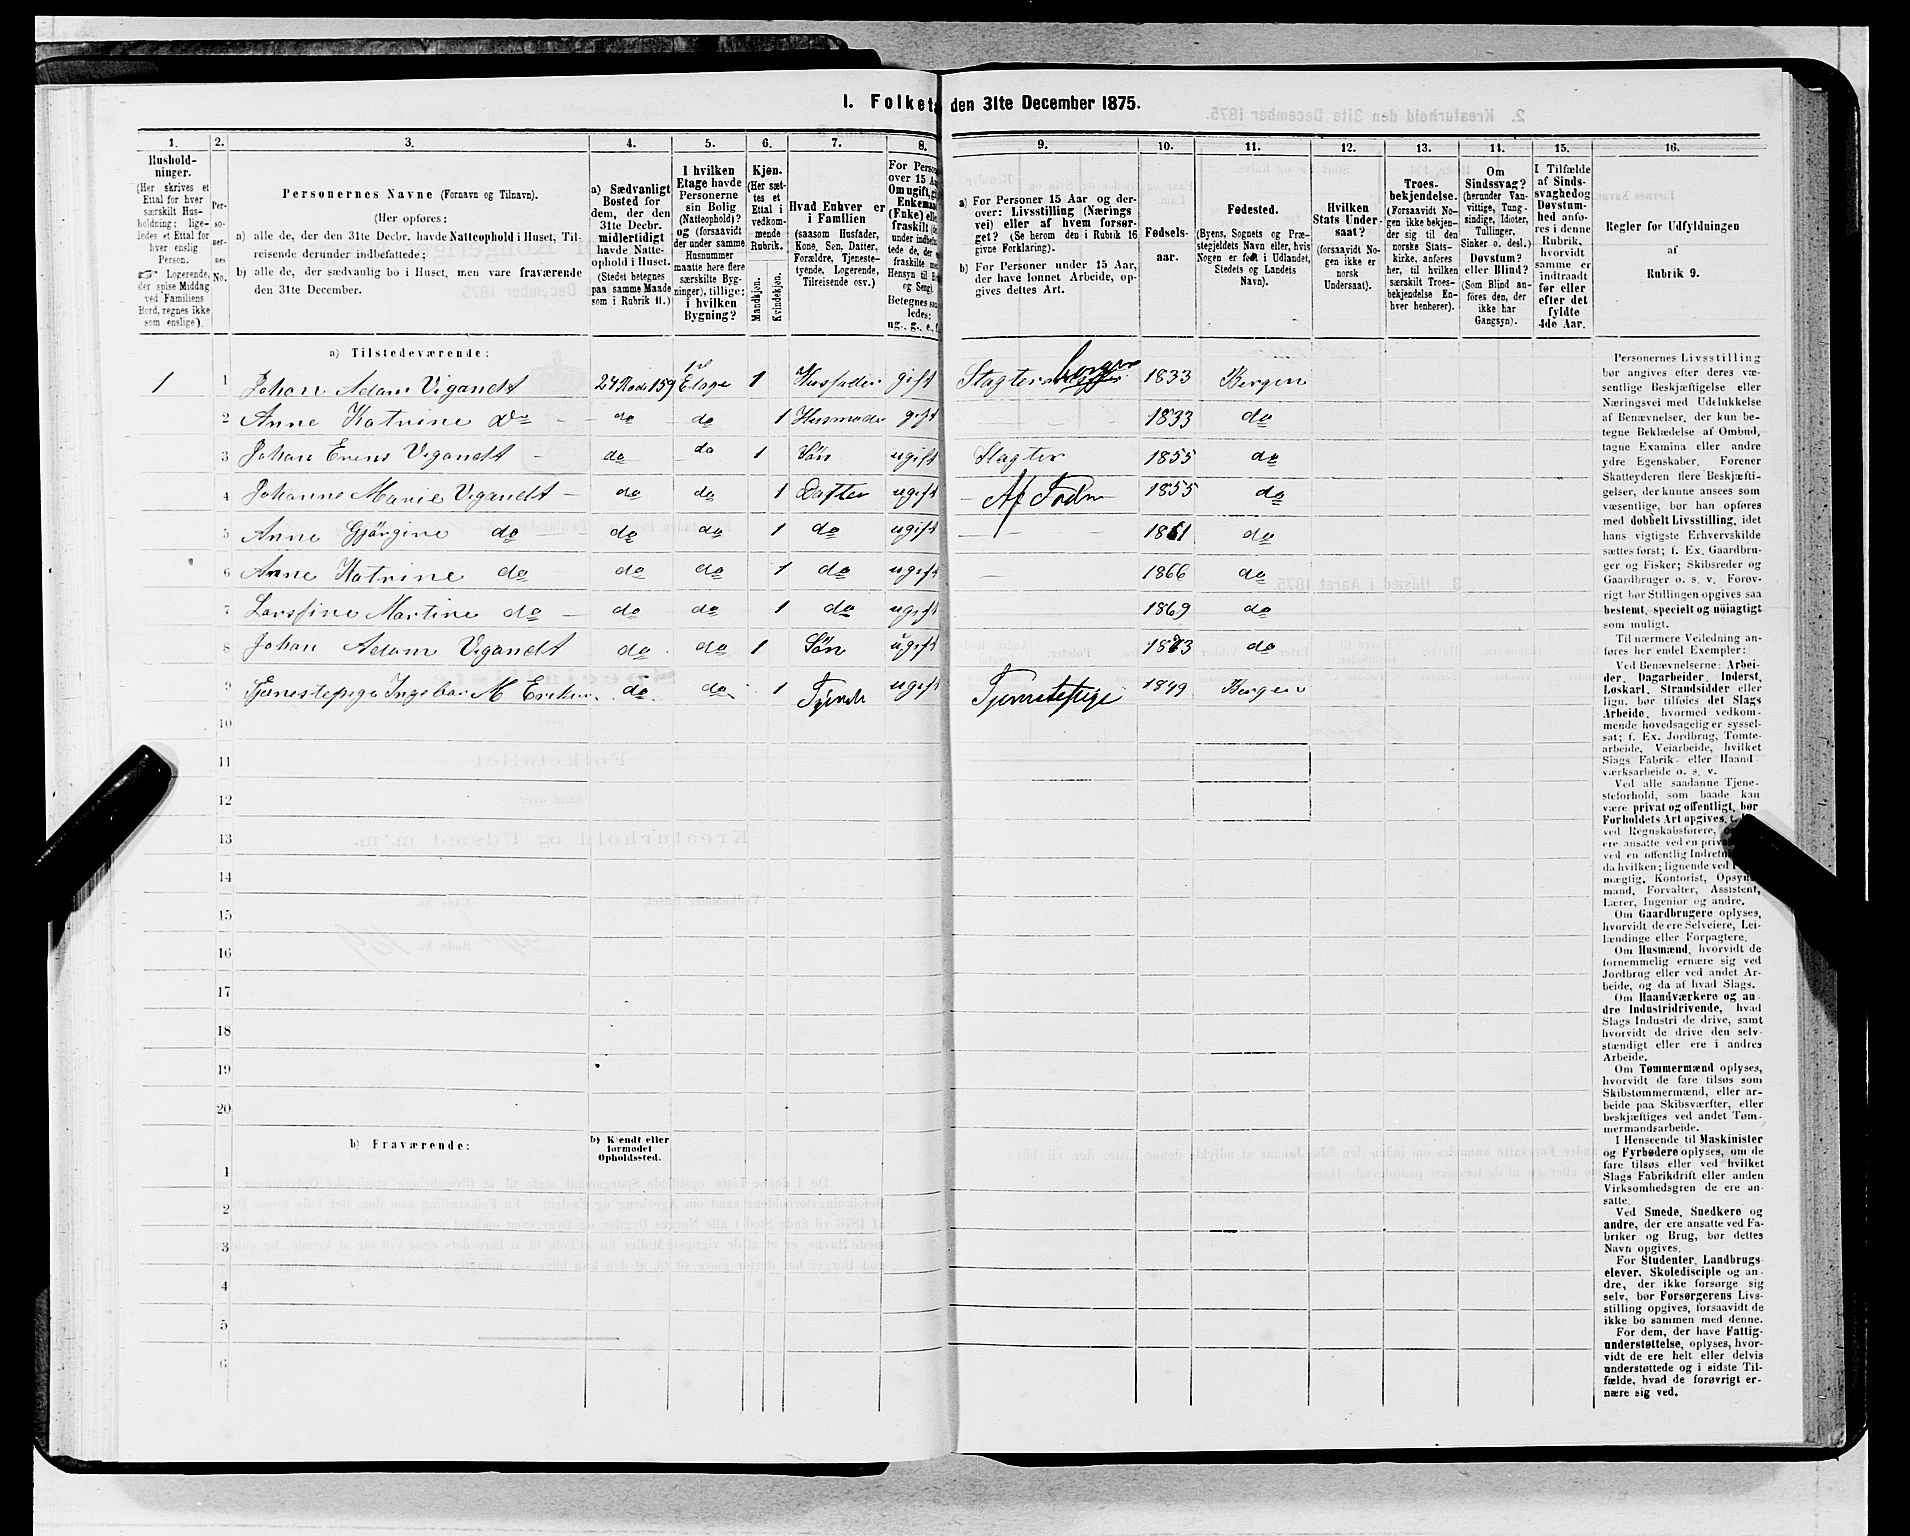 1. Folketa den 31te December 1875.
1. 2. 3. 4. 5. 6. 7. 8. 9. 10. 11. 12. 13. 14. 15. 16.
Hushold-
ninger.
(Her skrives et
Ettal for hver
særskilt Hus-
holdning; lige-
ledes et Ettal for
hver enslig
Person.
☞ Logerende,
der spise Middag
ved Familiens
Bord, regnes ikke
som enslige).
Per-
so-
ner-
nes
No.
Personernes Navne (Fornavn og Tilnavn).
(Her opføres:
a) alle de, der den 31te Decbr. havde Natteophold i Huset, Til-
reisende derunder indbefattede;
b) alle de, der sædvanlig bo i Huset, men vare fraværende
den 31te December.
a) Sædvanligt
Bosted for
dem, der den
31te Decbr.
midlertidigt
havde Natte-
ophold i Huset.
(Stedet betegnes
paa samme Maade
som i Rubrik 11.)
I hvilken
Etage havde
Personerne
sin Bolig
(Natteophold)?
og (forsaavidt
der under samme
Husnummer
maatte høre flere
særskilte Byg-
ninger), tillige:
i hvilken
Bygning?
Kjøn.
(Her sæt-
tes et
Ettal i
vedkom-
mende
Rubrik.
Mandkjøn.
Kvindekjøn.
Hvad Enhver er
i Familien
(saasom Husfader,
Kone, Søn, Datter,
Forældre, Tjeneste-
tyende, Logerende,
Tilreisende osv.)
For Person
over 15 Aa
Om ugift, gi
Enkeman
(Enke) elle
fraskilt
Betegnes saa
ledes:
ug., g., e., f
a) For Personer 15 Aar og der-
over: Livsstilling (Nærings
vei) eller af hvem forsør-
get? (Se herom den i Rubrik 16
givne Forklaring).
b) For Personer under 15 Aar,
der have lønnet Arbeide, op-
gives dettes Art.
Fødsels-
aar.
Fødested.
(Byens, Sognets og Præ-
stegjeldets Navn eller, hvis
Nogen er født i Udlandet,
Stedets og Landets
Navn).
Hvilken
Stats Under-
saat?
(forsaavidt No-
gen ikke er
norsk
Undersaat).
Troes-
bekjendelse.
(Forsaavidt No-
gen ikke bekjen-
der sig til den
norske Stats-
kirke, anføres
her, til hvilken
særskilt Troes-
bekjendelse En-
hver henhører).
Om
Sindssvag?
(herunder Van-
vittige, Tung-
sindige, Idioter,
Tullinger,
Sinker o. desl.)
Døvstum?
eller Blind?
(Som Blind an-
føres den, der
ikke har
Gangsyn).
I Tilfælde
af Sinds-
svaghed og
Døvstum-
hed anfø-
res i denne
Rubrik,
hvorvidt
samme er
indtraadt
før eller
efter det
fyldte
4de Aar.
Regler for Udfyldningen
af
Rubrik 9.
a) Tilstedeværende:
1 1 Johan Adam Vigandt 24 Rode 159 1ste Etage 1 Husfader gift Slagter berger 1833 Bergen
2 Anne Katrine Do - do do 1 Husmoder gift 1833 do
3 Johan Erens Vigandt - do do 1 Søn ugift Slagter 1855 do
4 Johanne Marie Vigandt - do do 1 Datter ugift - Af Fader 1855 do
5 Anne Gjørgine do do do 1 do ugift 1861 do
6 Anne Katrine do do do 1 do ugift 1866 do
7 Larsfine Martine do - do do 1 do ugift 1869 do
8 Johan Adam Vigandt do do 1 Søn ugift 1873 do
9 Tjenestepige Ingebor M do do 1 ugift Tjenestepige 1849 Bergen
10
11
12
13
14
15
16
17
18
19
20
b) Fraværende:
b) Kjendt eller
formodet
Opholdssted.
1
2
3
4
5
6
Personernes Livsstilling
bør angives efter deres væ-
sentlige Beskjæftigelse eller
Næringsvei med Udelukkelse
af Benævnelser, der kun be-
tegne Beklædelse af Ombud,
tagne Examina eller andre
ydre Egenskaber. Forener
Skatteyderen flere Beskjæfti-
gelser, der kunne ansees som
væsentlige, bør han opføres
med dobbelt Livsstilling, idet
hans vigtigste Erhvervskilde
sættes først; f. Ex. Gaardbru-
ger og Fisker; Skibsreder og
Gaardbruger o. s. v. Forøv-
rigt bør Stillingen opgives saa
bestemt, specielt og nøiagtigt
som muligt.
Til nærmere Veiledning an-
føres her endel Exempler:
Ved Benævnelserne: Arbei-
der, Dagarbeider, Inderst,
Løskarl, Strandsidder eller
lign. bør tilføies det Slags
Arbeide, hvormed vedkom-
mende hovedsagelig er syssel-
sat; f. Ex. Jordbrug, Tomte-
arbeide, Veiarbeide, hvilket
Slags Fabrik- eller Haand-
værksarbeide o. s. v.
Ved alle saadanne Tjene-
steforhold, som baade kan
være privat og offentligt, bør
Forholdets Art opgives,
ved Regnskabsførere,
ere ansatte ved en priva
ved en offentlig Indretn
da hvilken; lignende ved
mægtig, Kontorist, Opsyns
mand, Forvalter, Assistent,
Lærer, Ingeniør og andre.
Om Gaardbrugere oplyses,
hvorvidt de ere Selveiere, Lei-
lændinge eller Forpagtere.
Om Husmænd, hvorvidt de
fornemmelig ernære sig ved
Jordbrug eller ved andet Ar-
beide, og da af hvad Slags.
Om Haandværkere og an-
dre Industridrivende, hvad
Slags Industri de drive, samt
hvorvidt de drive den selv-
stændigt eller ere i andres
Arbeide.
Om Tømmermænd oplyses,
hvorvidt de fare tilsøs som
Skibstømmermænd, eller ar-
beide paa Skibsværfter, eller
beskjæftiges ved andet Tøm-
mermandsarbeide.
I Henseende til Maskinister
og Fyrbødere oplyses, om de
fare tilsøs eller ved hvilket
Slags Fabrikdrift eller anden
Virksomhedsgren de ere an-
satte.
Ved Smede, Snedkere og
andre, der ere ansatte ved Fa-
briker og Brug, bør dettes
Navn opgives.
For Studenter, Landbrugs-
elever, Skoledisciple og an-
dre, der ikke forsørge sig
selv, bør Forsørgerens Livs-
stilling opgives, forsaavidt de
ikke bo sammen med denne.
For dem, der have Fattig-
understøttelse, oplyses, hvor-
vidt de ere helt eller delvis
understøttede og i sidste Til-
fælde, hvad de forøvrigt er-
nære sig ved.